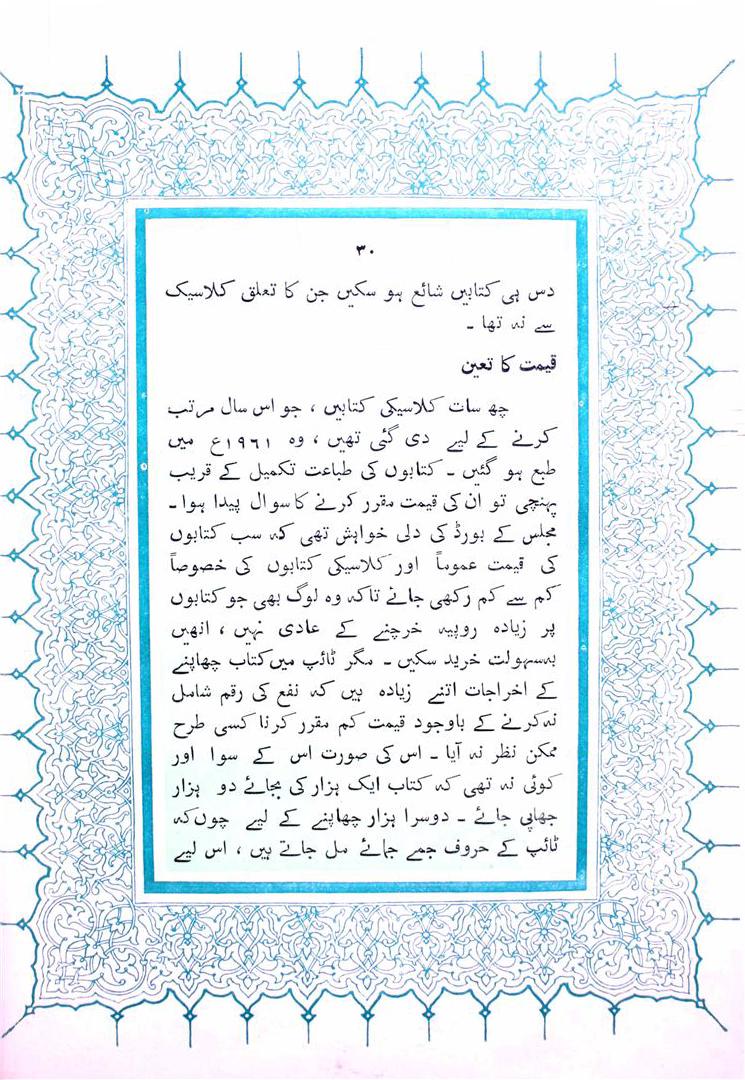 ۳۰
دس ہی کتابیں شائع ہو سکیں جن کا تعلق کلاسیک
سے نہ تھا ۔
قیمت کا تعین
چھ سات کلاسیکی کتابیں ، جو اس سال مرتب
کرنے کے لیے دی گئی تھیں ، وہ ۱۹۶۱ع میں
طبع ہو گئیں ۔ کتابوں کی طباعت تکمیل کے قریب
پہنچی تو ان کی قیمت مقرر کرنے کا سوال پیدا ہوا ۔
مجلس کے بورڈ کی دلی خواہش تھی کہ سب کتابوں
کی قیمت عموماً اور کلاسیکی کتابوں کی خصوصاً
کم سے کم رکھی جائے تاکہ وہ لوگ بھی جو کتابوں
پر زیادہ روپیہ خرچنے کے عادی نہیں ، انھیں
بہ سہولت خرید سکیں ۔ مگر ٹائپ میں کتاب چھاپنے
کے اخراجات اتنے زیادہ ہیں کہ نفع کی رقم شامل
نہ کرنے کے باوجود قیمت کم مقرر کرنا کسی طرح
ممکن نظر نہ آیا ۔ اس کی صورت اس کے سوا اور
کوئی نہ تھی کہ کتاب ایک ہزار کی بجائے دو ہزار
چھاپی جائے ۔ دوسرا ہزار چھاپنے کے لیے چوں کہ
ٹائپ کے حروف جمے جمائے مل جاتے ہیں ، اس لیے